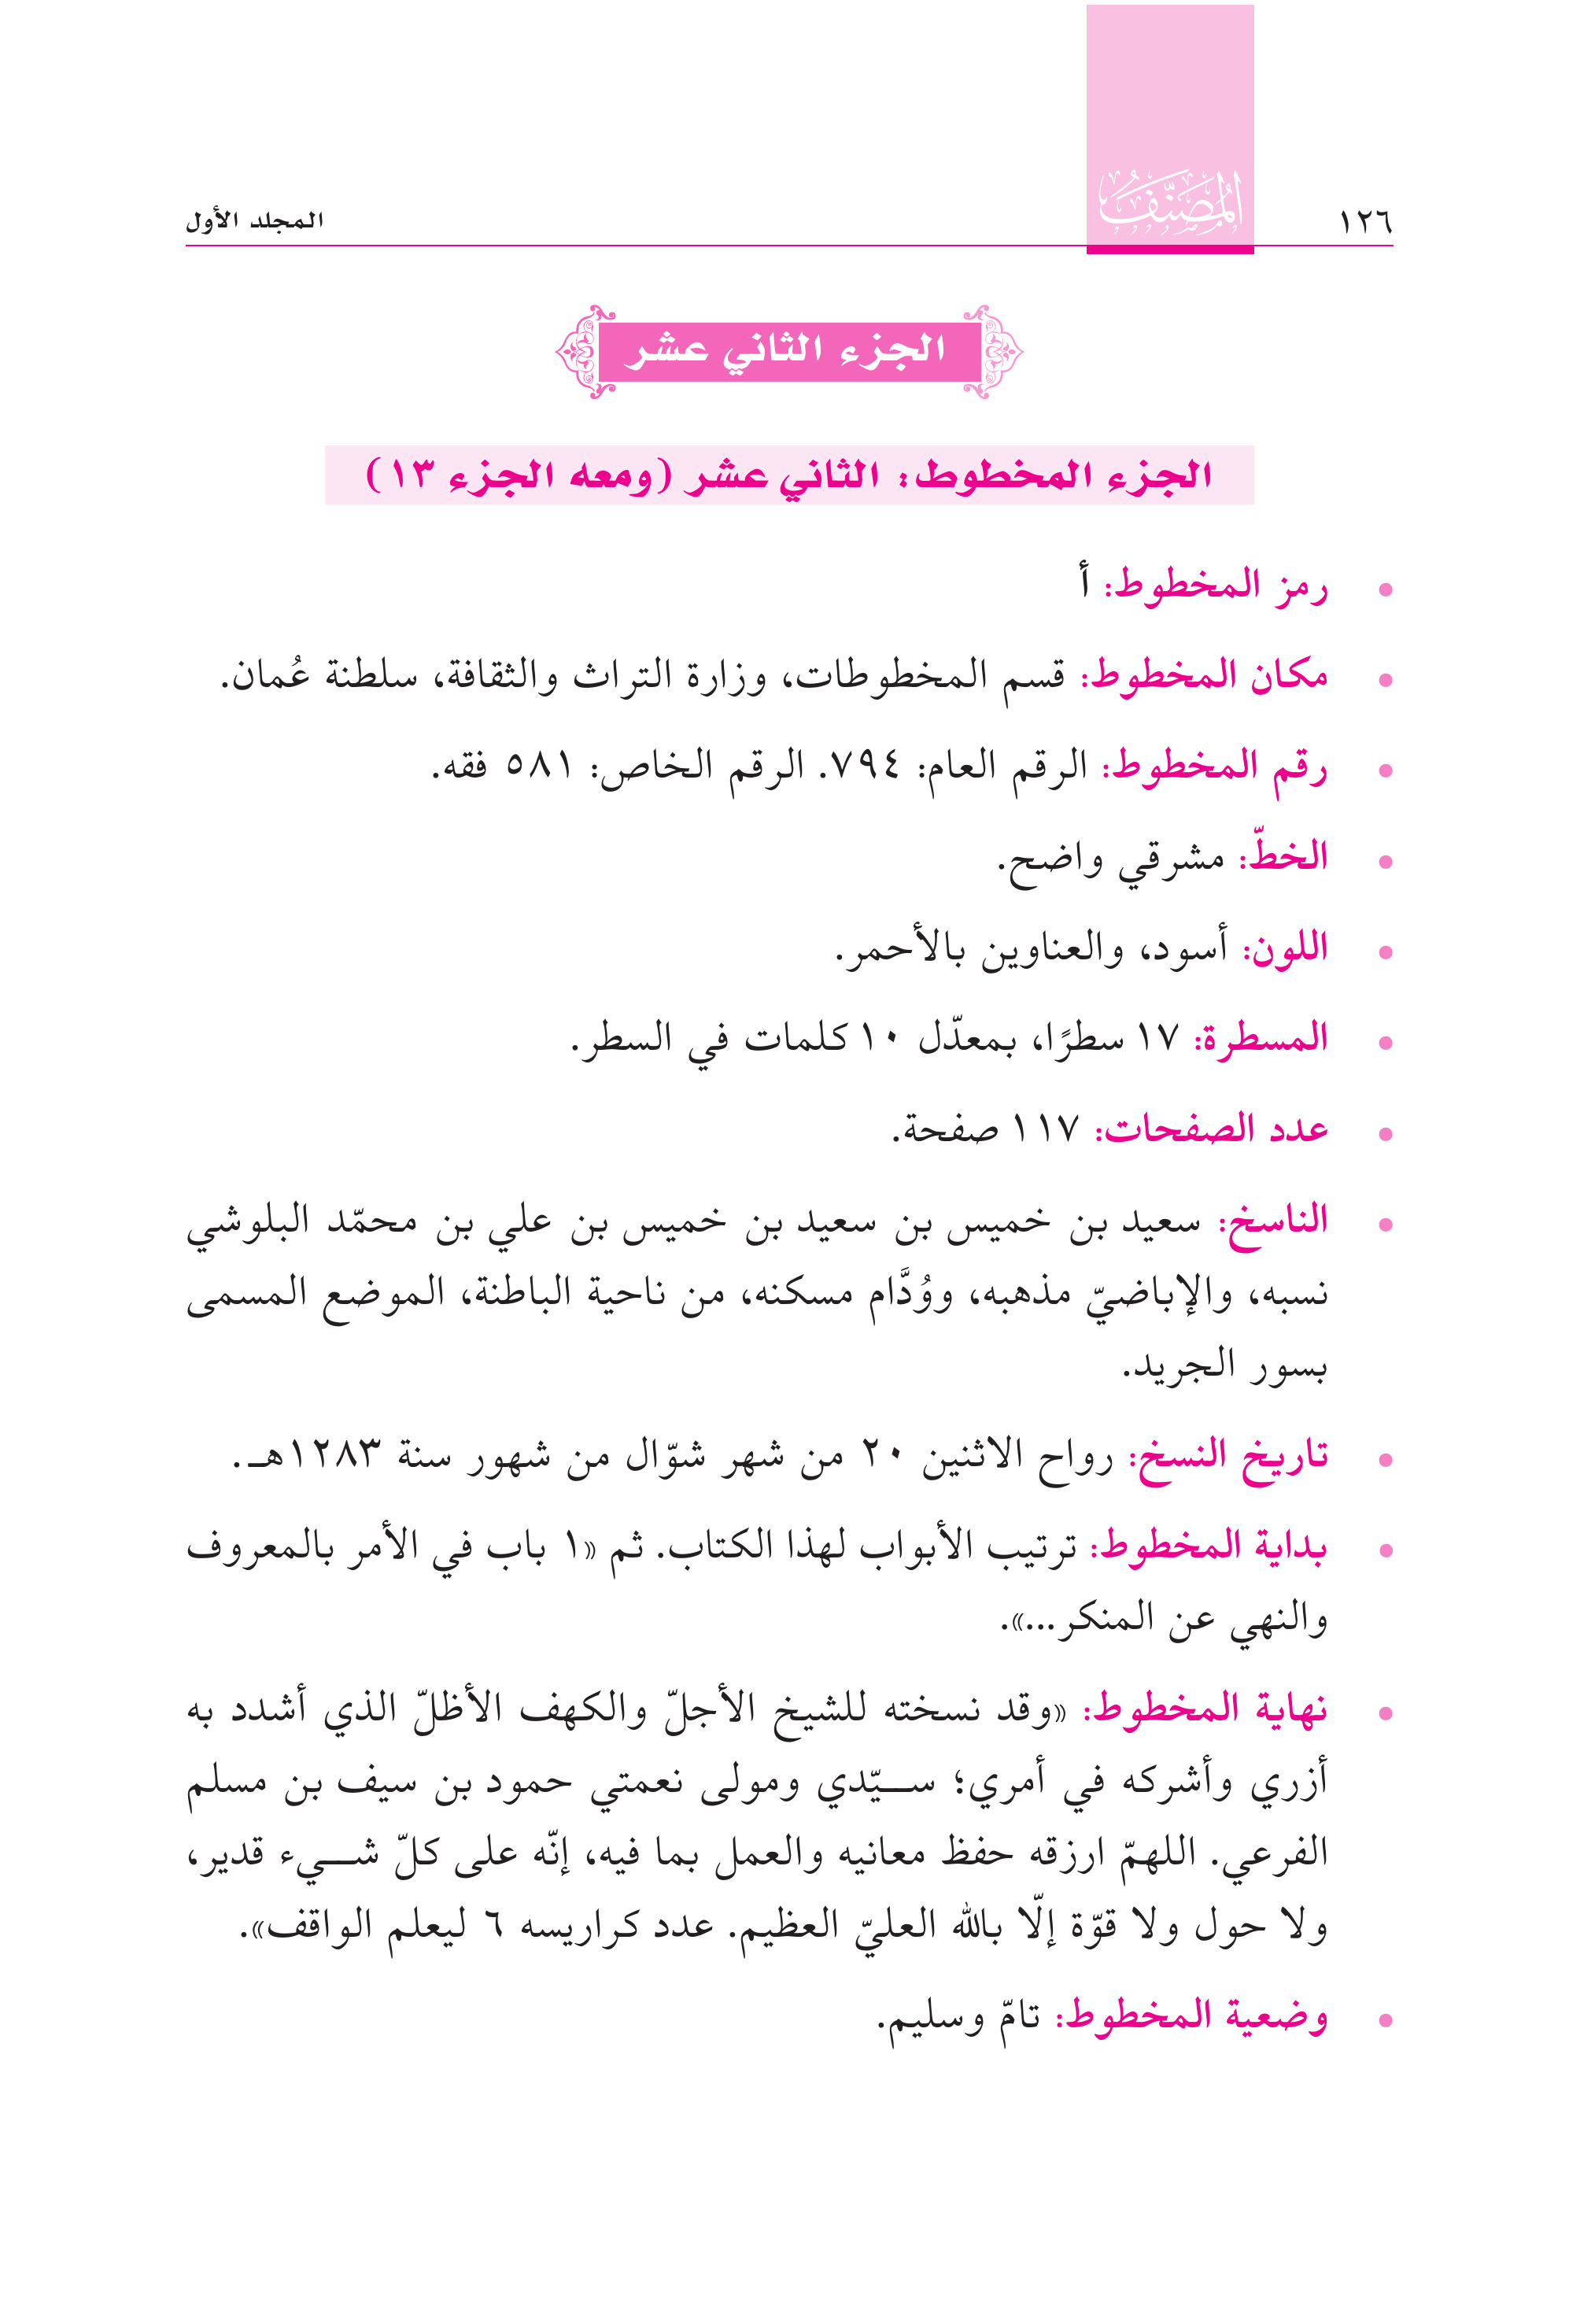 ١٢٦
المُصَنَّفُ
المجلد الأول
الجزء الثاني عشر
الجزء المخطوط: الثاني عشر (ومعه الجزء ١٣)
• رمز المخطوط: أ
• مكان المخطوط: قسم المخطوطات، وزارة التراث والثقافة، سلطنة عُمان.
• رقم المخطوط: الرقم العام: ٧٩٤. الرقم الخاص: ٥٨١ فقه.
• الخطّ: مشرقي واضح.
• اللون: أسود، والعناوين بالأحمر.
• المسطرة: ١٧ سطرًا، بمعدّل ١٠ كلمات في السطر.
• عدد الصفحات: ١١٧ صفحة.
• الناسخ: سعيد بن خميس بن سعيد بن خميس بن علي بن محمّد البلوشي
نسبه، والإباضيّ مذهبه، ووُدَّام مسكنه، من ناحية الباطنة، الموضع المسمى
بسور الجريد.
• تاريخ النسخ: رواح الاثنين ٢٠ من شهر شوّال من شهور سنة ١٢٨٣هـ.
• بداية المخطوط: ترتيب الأبواب لهذا الكتاب. ثم «١ باب في الأمر بالمعروف
والنهي عن المنكر...».
• نهاية المخطوط: «وقد نسخته للشيخ الأجلّ والكهف الأظلّ الذي أشدد به
أزري وأشركه في أمري؛ سـيّدي ومولى نعمتي حمود بن سيف بن مسلم
الفرعي. اللهمّ ارزقه حفظ معانيه والعمل بما فيه، إنّه على كلّ شـيء قدير،
ولا حول ولا قوّة إلّا بالله العليّ العظيم. عدد كراريسه ٦ ليعلم الواقف».
• وضعية المخطوط: تامّ وسليم.